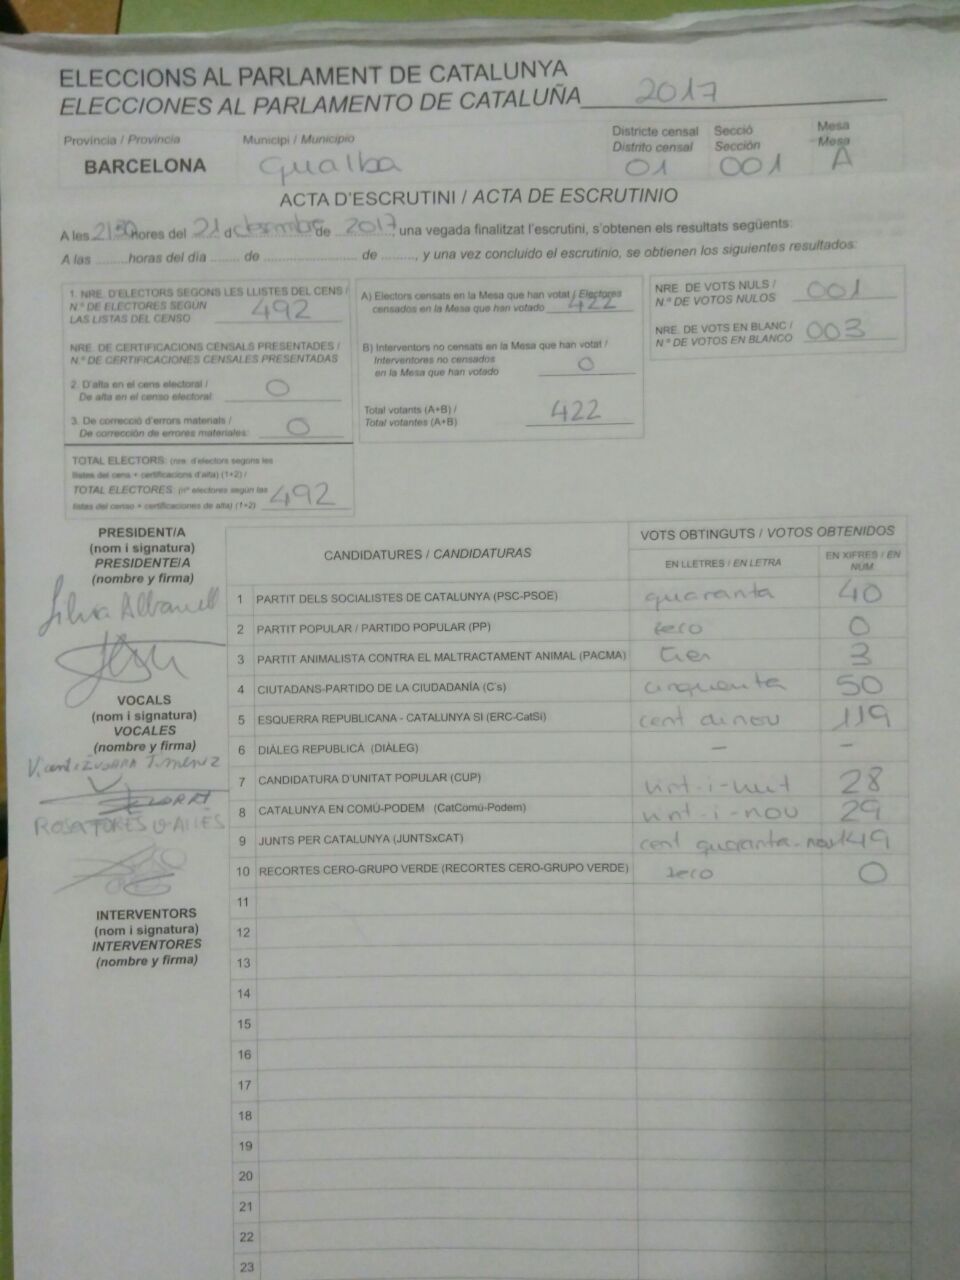 ELECCIONS AL PARLAMENT DE CATALUNYA
ELECCIONES AL PARLAMENTO DE CATALUÑA 2017
Província / Provincia
BARCELONA
Municipi / Municipio
Gualba
Districte censal
Distrito censal
01
Secció
Sección
001
Mesa
Mesa
A
ACTA D'ESCRUTINI / ACTA DE ESCRUTINIO
A les 2130 hores del 21 de desembre de 2017, una vegada finalitzat l'escrutini, s'obtenen els resultats següents:
A las ......... horas del día ........ de ........................ de ........., y una vez concluido el escrutinio, se obtienen los siguientes resultados:
1. NRE. D'ELECTORS SEGONS LES LLISTES DEL CENS /
N.º DE ELECTORES SEGÚN
LAS LISTAS DEL CENSO 492
NRE. DE CERTIFICACIONS CENSALS PRESENTADES /
N.º DE CERTIFICACIONES CENSALES PRESENTADAS
2. D'alta en el cens electoral /
De alta en el censo electoral: 0
3. De correcció d'errors materials /
De corrección de errores materiales: 0
TOTAL ELECTORS: (nre. d'electors segons les
llistes del cens + certificacions d'alta) (1+2) /
TOTAL ELECTORES: (nº electores según las
listas del censo + certificaciones de alta) (1+2) 492
A) Electors censats en la Mesa que han votat / Electores
censados en la Mesa que han votado 422
B) Interventors no censats en la Mesa que han votat /
Interventores no censados
en la Mesa que han votado 0
Total votants (A+B) /
Total votantes (A+B) 422
NRE. DE VOTS NULS /
N.º DE VOTOS NULOS 001
NRE. DE VOTS EN BLANC /
N.º DE VOTOS EN BLANCO 003
PRESIDENT/A
(nom i signatura)
PRESIDENTE/A
(nombre y firma)
Silvia Albanell
VOCALS
(nom i signatura)
VOCALES
(nombre y firma)
ROSA TORES
INTERVENTORS
(nom i signatura)
INTERVENTORES
(nombre y firma)
CANDIDATURES / CANDIDATURAS
VOTS OBTINGUTS / VOTOS OBTENIDOS
EN LLETRES / EN LETRA
EN XIFRES / EN NUM
1 PARTIT DELS SOCIALISTES DE CATALUNYA (PSC-PSOE) quaranta 40
2 PARTIT POPULAR / PARTIDO POPULAR (PP) zero 0
3 PARTIT ANIMALISTA CONTRA EL MALTRACTAMENT ANIMAL (PACMA) tres 3
4 CIUTADANS-PARTIDO DE LA CIUDADANÍA (C's) cinquanta 50
5 ESQUERRA REPUBLICANA - CATALUNYA SÍ (ERC-CatSí) cent dinou 119
6 DIÀLEG REPUBLICÀ (DIÀLEG) – –
7 CANDIDATURA D'UNITAT POPULAR (CUP) vint-i-vuit 28
8 CATALUNYA EN COMÚ-PODEM (CatComú-Podem) vint-i-nou 29
9 JUNTS PER CATALUNYA (JUNTSxCAT) cent quaranta-nou 149
10 RECORTES CERO-GRUPO VERDE (RECORTES CERO-GRUPO VERDE) zero 0
11
12
13
14
15
16
17
18
19
20
21
22
23